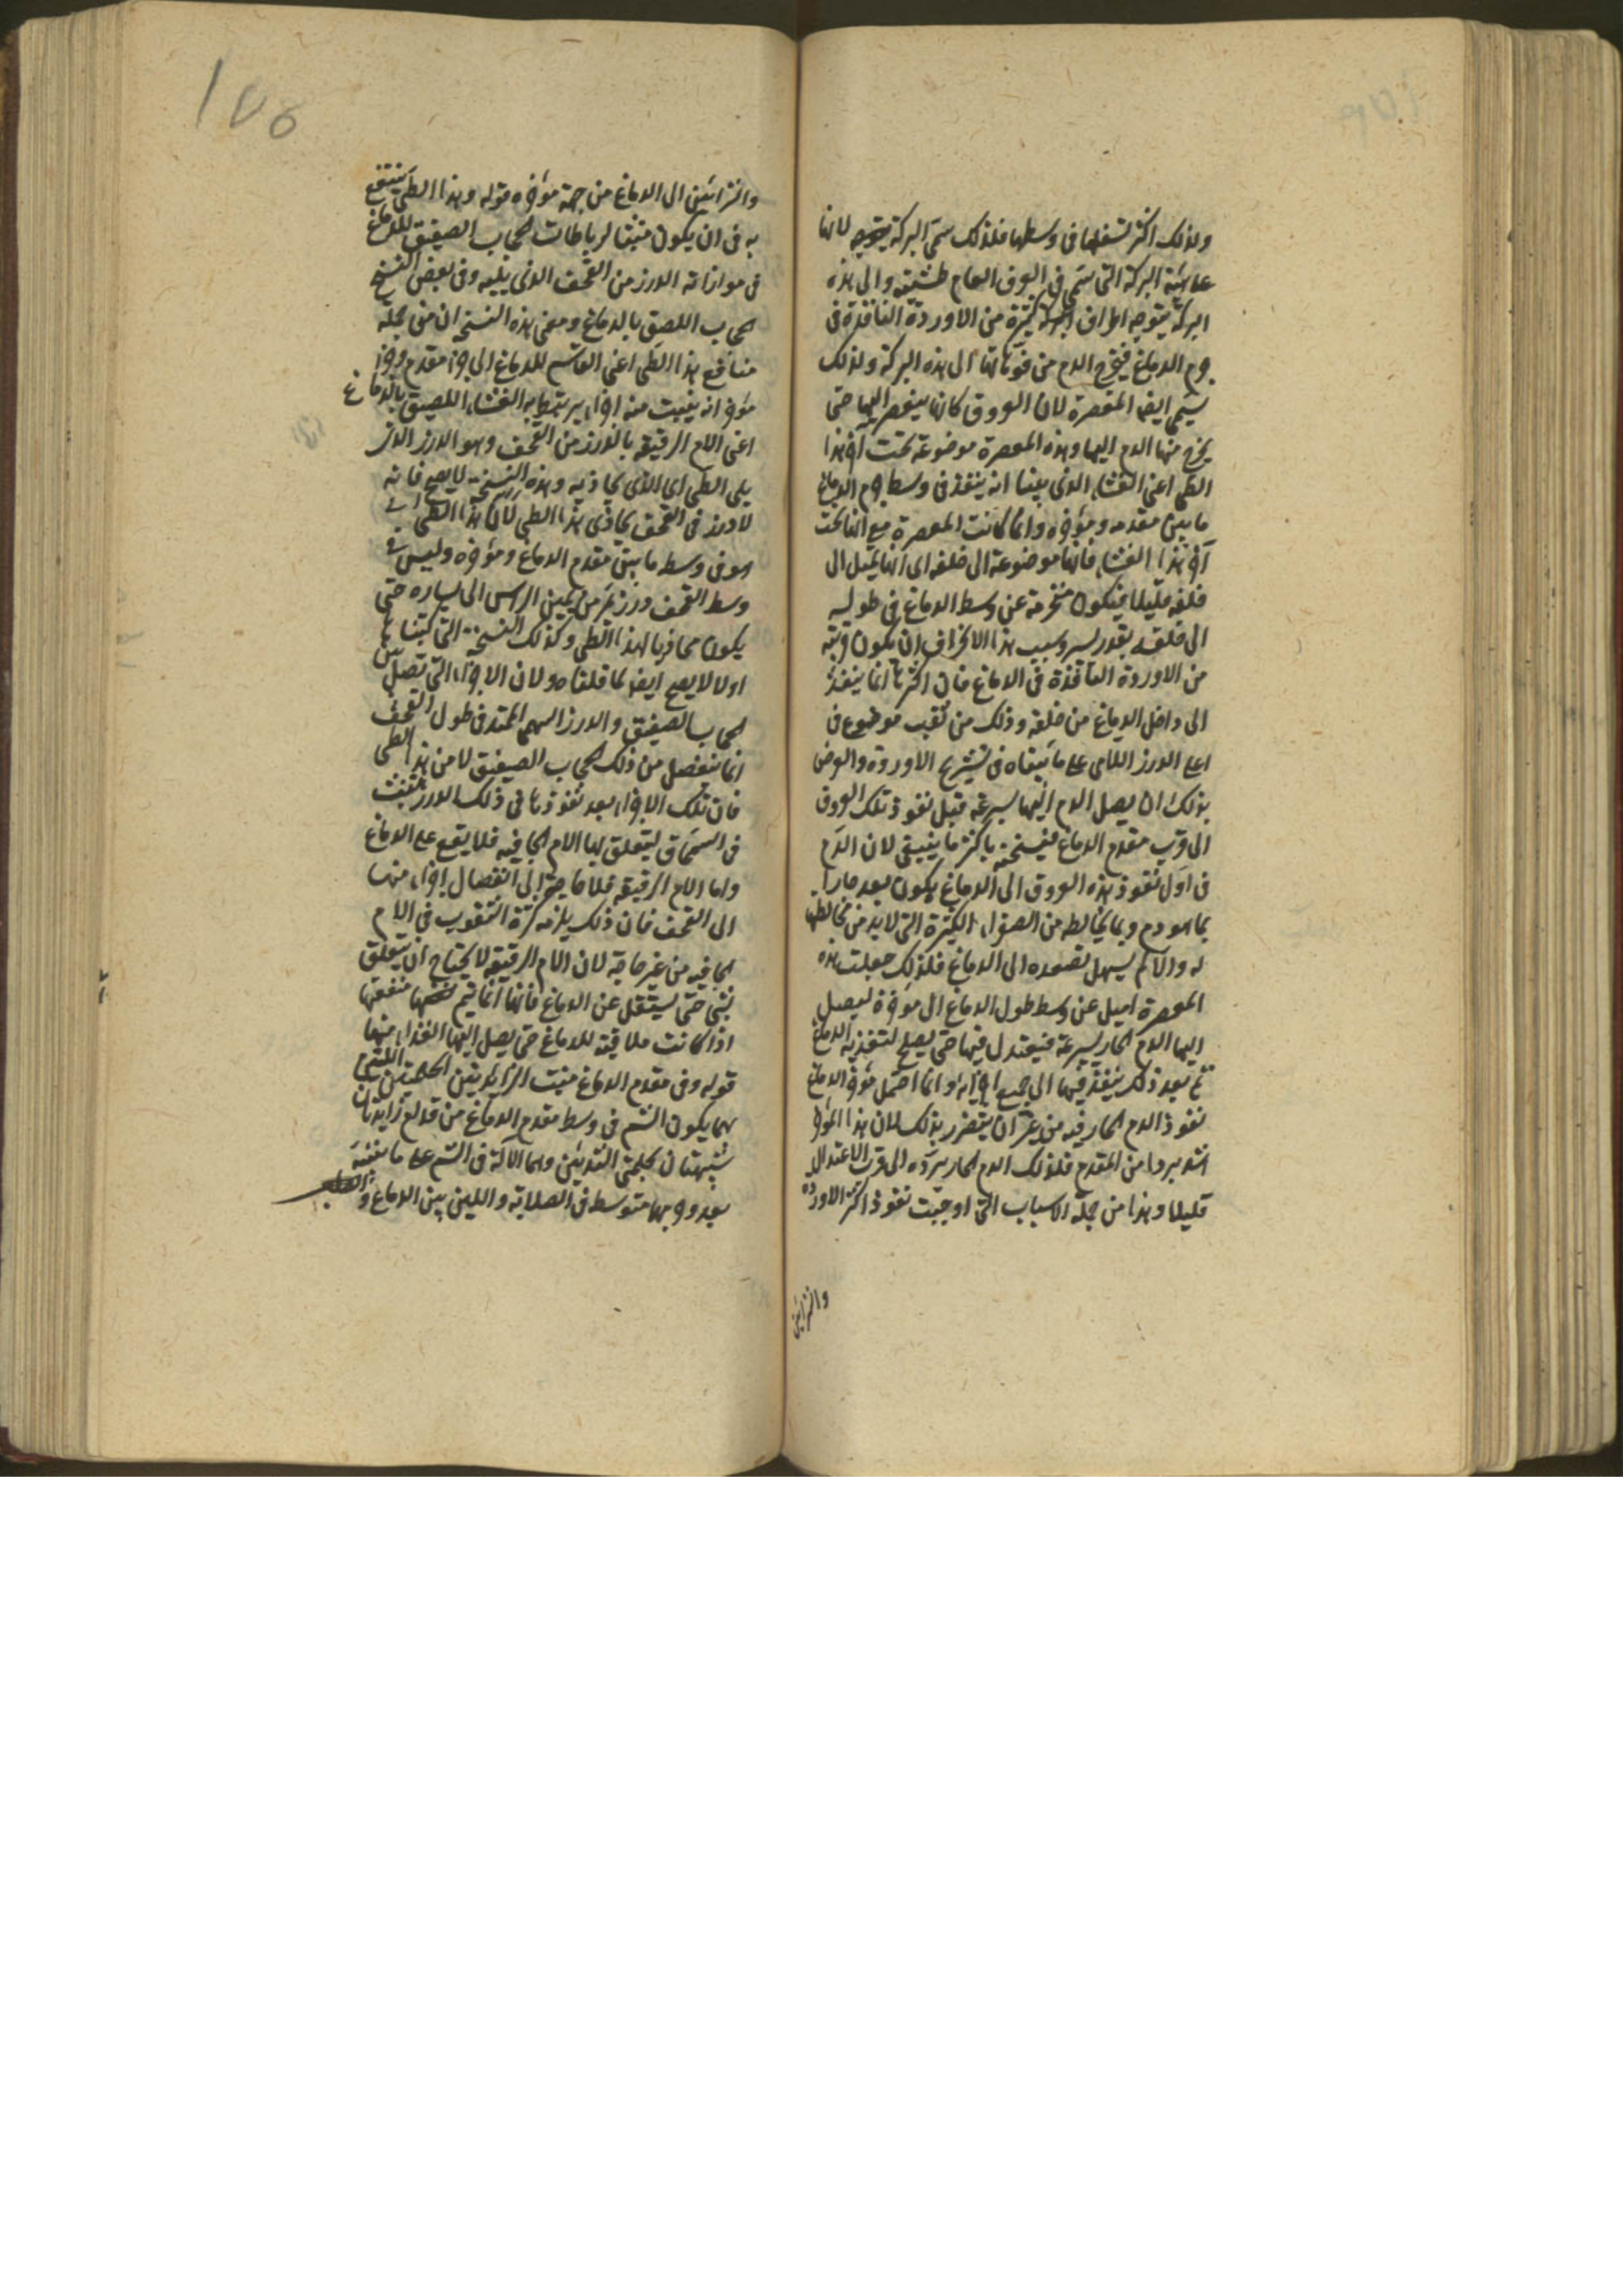 ولذلك اكثر تسفلها فى وسطها فلذلك سمى البركة لانها
على هيئة البركة التى تسمى فى العرف العام طشتية والى هذه
البركة يتوجه اطراف اجزاء كثيرة من الاوردة النافذة فى
جرم الدماغ فيخرج الدم من فوهاتها الى هذه البركة ولذلك
يسمى ايضا المعصرة لان العروق كانها ينعصر اليها حتى
يخرج منها الدم اليها وهذه المعصرة موضوعة تحت آخر هذا
الطى اعنى الغشاء الذى بينا انه ينفذ فى وسط جرم الدماغ
ما بين مقدمه ومؤخره وانما كانت المعصرة مع انها تحت
آخر هذا الغشاء فانها موضوعة الى خلفه اى انها تميل الى
خلفه قليلا فيكون منحرفة عن وسط الدماغ فى طوله
الى خلفه بقدر يسير وسبب هذا الانحراف ان يكون قريبة
من الاوردة النافذة فى الدماغ فان اكثرها انما ينفذ
الى داخل الدماغ من خلفه وذلك من ثقب موضوع فى
اعلى الدرز اللامى على ما بيناه فى تشريح الاوردة والغرض
بذلك ان يصل الدم اليها بسرعة قبل نفوذ تلك العروق
الى قرب مقدم الدماغ فيسخنه باكثر ما ينبغى لان الدم
فى اول نفوذ هذه العروق الى الدماغ يكون بعد حارا
بما هو دم وبما يخالطه من الصفراء الكثيرة التى لا بد من مخالطتها
له والا لم يسهل تصعده الى الدماغ فلذلك جعلت هذه
المعصرة اميل عن وسط طول الدماغ الى مؤخره ليصل
اليها الدم الحار بسرعة فيعتدل فيها حتى يصلح لتغذية الدماغ
ثم بعد ذلك ينفذ فيها الى جميع اجزائه وانما احتمل مؤخر الدماغ
نفوذ الدم الحار فيه من غير ان يتضرر بذلك لان هذا المؤخر
اشد بردا من المقدم فلذلك الدم الحار يرده الى قرب الاعتدال
قليلا وهذا من جملة الاسباب التى اوجبت نفوذ اكثر الاوردة
والشرائين
١٧٥
والشرائين الى الدماغ من جهة مؤخره قوله وهذا الطى ينتفع
به فى ان يكون منبتا لرباطات الحجاب الصفيق للدماغ
فى موازاته الدرز من القحف الذى يليه وفى بعض النسخ
الحجاب اللصق بالدماغ ومعنى هذه النسخة ان من جملة
منافع هذا الطى اعنى القاسم للدماغ الى جزء مقدم وجزء
مؤخر انه ينبت منه اجزاء يرتبط به الغشاء اللصيق بالدماغ
اعنى الام الرقيقة بالدرز من القحف وهو الدرز الذى
يلى الطى اى الذى يحاذيه وهذه النسخة لا يصح فانه
لا درز فى القحف يحاذى هذا الطى لان هذا الطى
هو فى وسط ما بين مقدم الدماغ ومؤخره وليس فى
وسط القحف درز يمر من يمين الراس الى يساره حتى
يكون محاذيا لهذا الطى وكذلك النسخة التى كتبناها
اولا لا يصح ايضا لما قلناه ولان الاجزاء التى تصل بين
الحجاب الصفيق والدرز السهمى الممتد فى طول القحف
انما ينفصل من ذلك الحجاب الصفيق لا من هذا الطى
فان تلك الاجزاء بعد نفوذها فى ذلك الدرز تتثبث
فى السمحاق ليتعلق بها الام الجافيه فلا يقع على الدماغ
واما الام الرقيقة فلا حاجة الى انفصال اجزاء منها
الى القحف فان ذلك يلزمه كثرة الثقوب فى الام
الجافيه من غير حاجة لان الام الرقيقة لا يحتاج ان يتعلق
بشئ حتى يستقل عن الدماغ فانها انما تتم منفعتها
اذا كانت ملاقية للدماغ حتى يصل اليها الغذاء منها
قوله وفى مقدم الدماغ منبت الزايدتين الحلميتين اللتين
بهما يكون الشم فى وسط مقدم الدماغ من قدام زايدتان
شبيهتان بحلمتى الثديين وهما الآلة فى الشم على ما نبينه
بعد وجرمهما متوسط فى الصلابة واللين بين الدماغ و